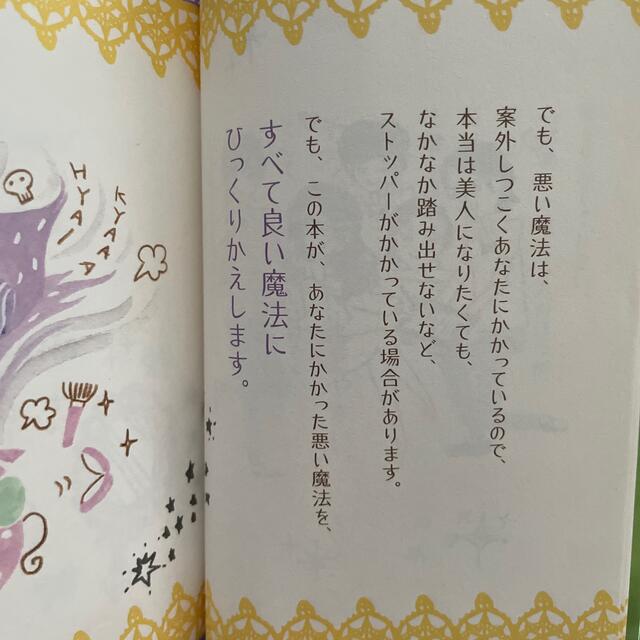 でも、悪い魔法は、
案外しつこくあなたにかかっているので、
本当は美人になりたくても、
なかなか踏み出せないなど、
ストッパーがかかっている場合があります。
でも、この本が、あなたにかかった悪い魔法を、
すべて良い魔法に
ひっくりかえします。
KYAAA
HYAIA